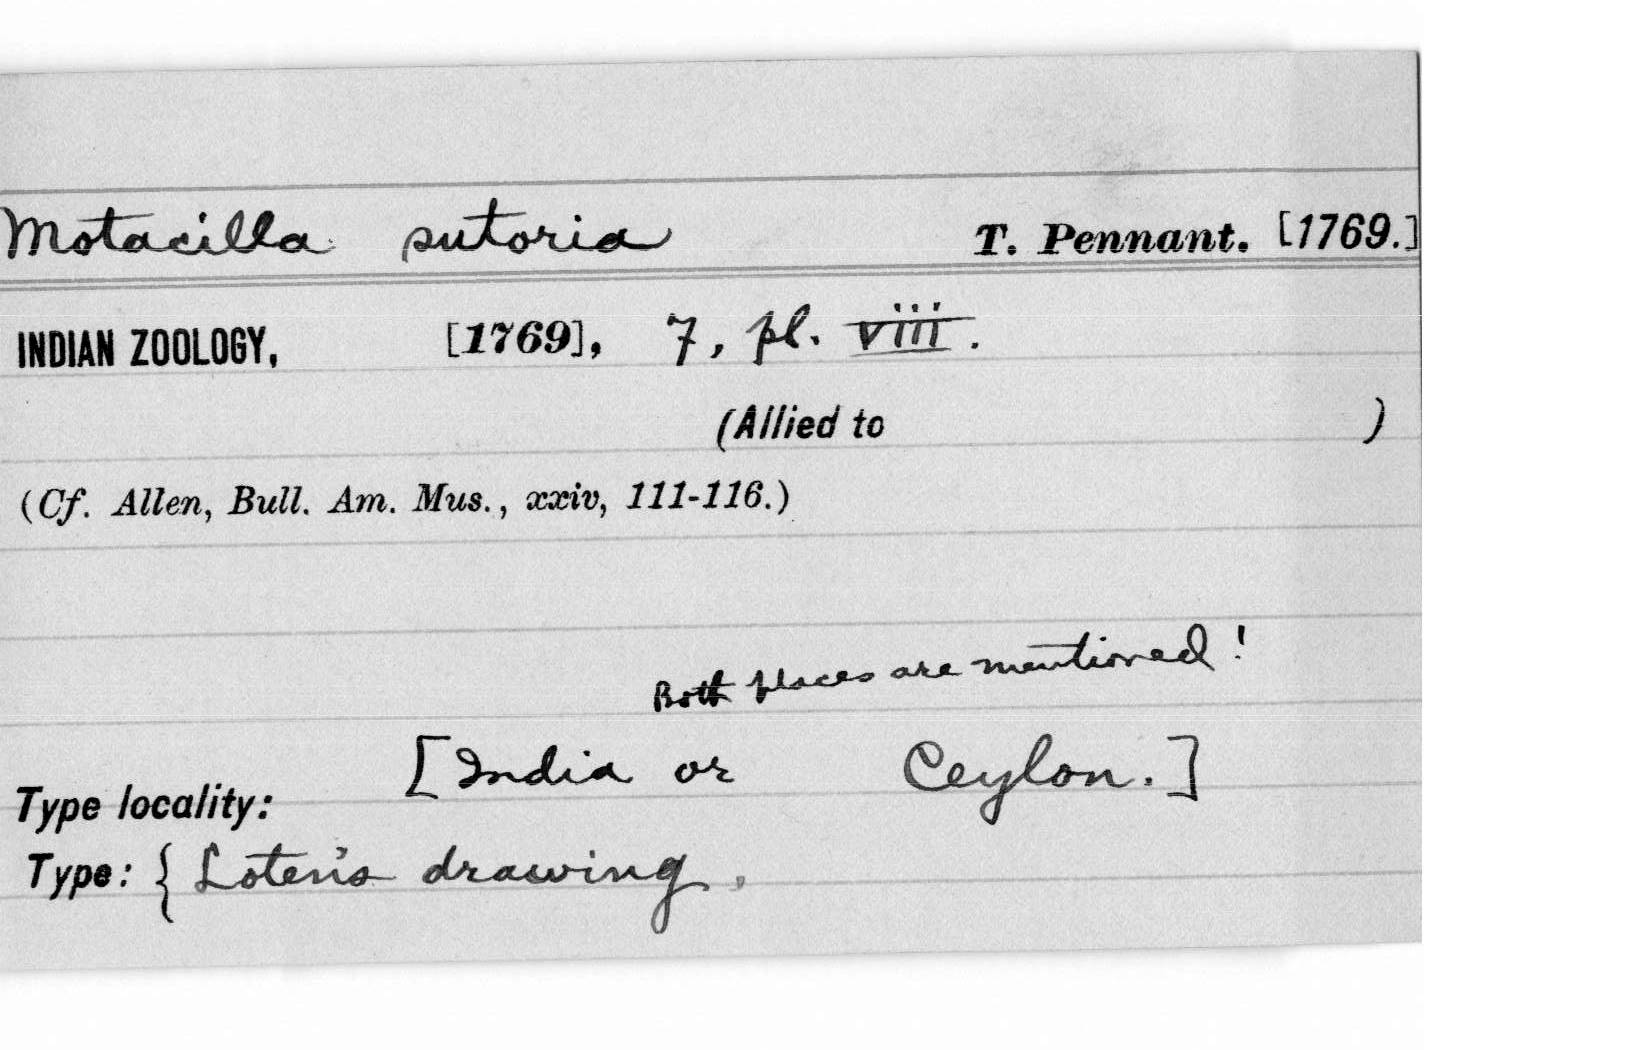 Motacilla sutoria T. Pennant. [1769.]
INDIAN ZOOLOGY, [1769], 7, pl. viii.
(Allied to )
(Cf. Allen, Bull. Am. Mus., xxiv, 111-116.)
Both places are mentioned!
Type locality: [India or Ceylon.]
Type: { Loten's drawing,